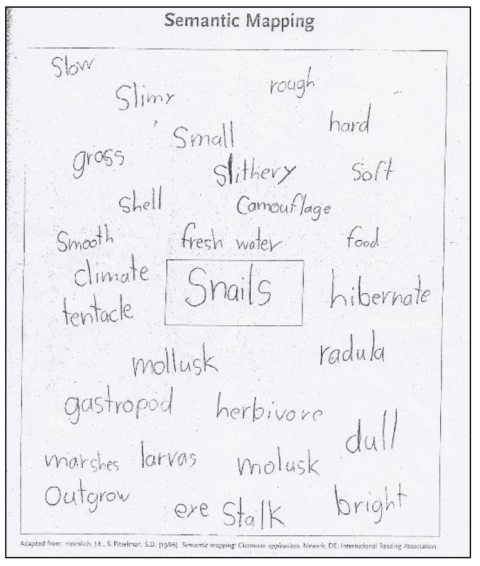 Semantic Mapping
Slow
Slimy
rough
Small
hard
gross
Slithery
Soft
Shell
Camouflage
Smooth
fresh water
food
climate
Snails
hibernate
tentacle
mollusk
radula
gastropod
herbivore
dull
marshes
larvas
molusk
Outgrow
eye Stalk
bright
Adapted from: Heimlich, J.E., & Pittelman, S.D. (1986). Semantic mapping: Classroom applications. Newark, DE: International Reading Association